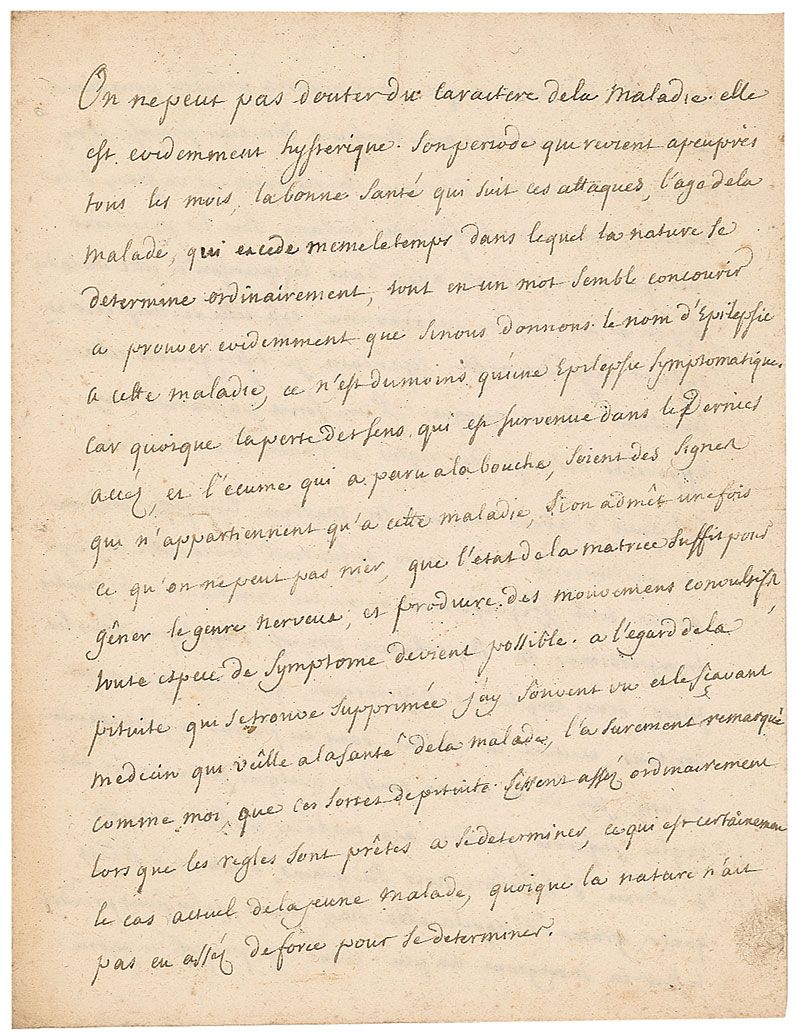 On ne peut pas douter du caractere de la maladie. elle
est evidemment hysterique. Son periode qui revient apeuprès
tous les mois, la bonne santé qui suit ces attaques, l'age de la
malade, qui excede meme le temps dans lequel la nature se
determine ordinairement, tout en un mot semble concourir
a prouver evidemment que si nous donnons le nom d'Epilepsie
a cette maladie, ce n'est dumoins qu'une Epilepsie symptomatique.
car quoique la perte des sens qui est survenue dans le Dernier
accés, et l'ecume qui a paru a la bouche, soient des signes
qui n'appartiennent qu'a cette maladie, si on admêt une fois
ce qu'on ne peut pas nier, que l'etat de la matrice suffit pour
gêner le genre nerveux, et produire des mouvemens convulsifs,
toute espece de symptome devient possible. a l'egard de la
pituite qui se trouve supprimée j'ay souvent vu et le sçavant
medecin qui veille a la santé de la malade, l'a surement remarqué
comme moi, que ces sortes de pituite assés ordinairement
lors que les regles sont prêtes a se determiner, ce qui est certainemen
le cas actuel de la jeune malade, quoique la nature n'ait
pas eu assés de force pour se determiner.